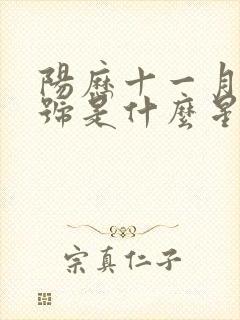 陽歷十一月
號是什麼星
宗真仁子